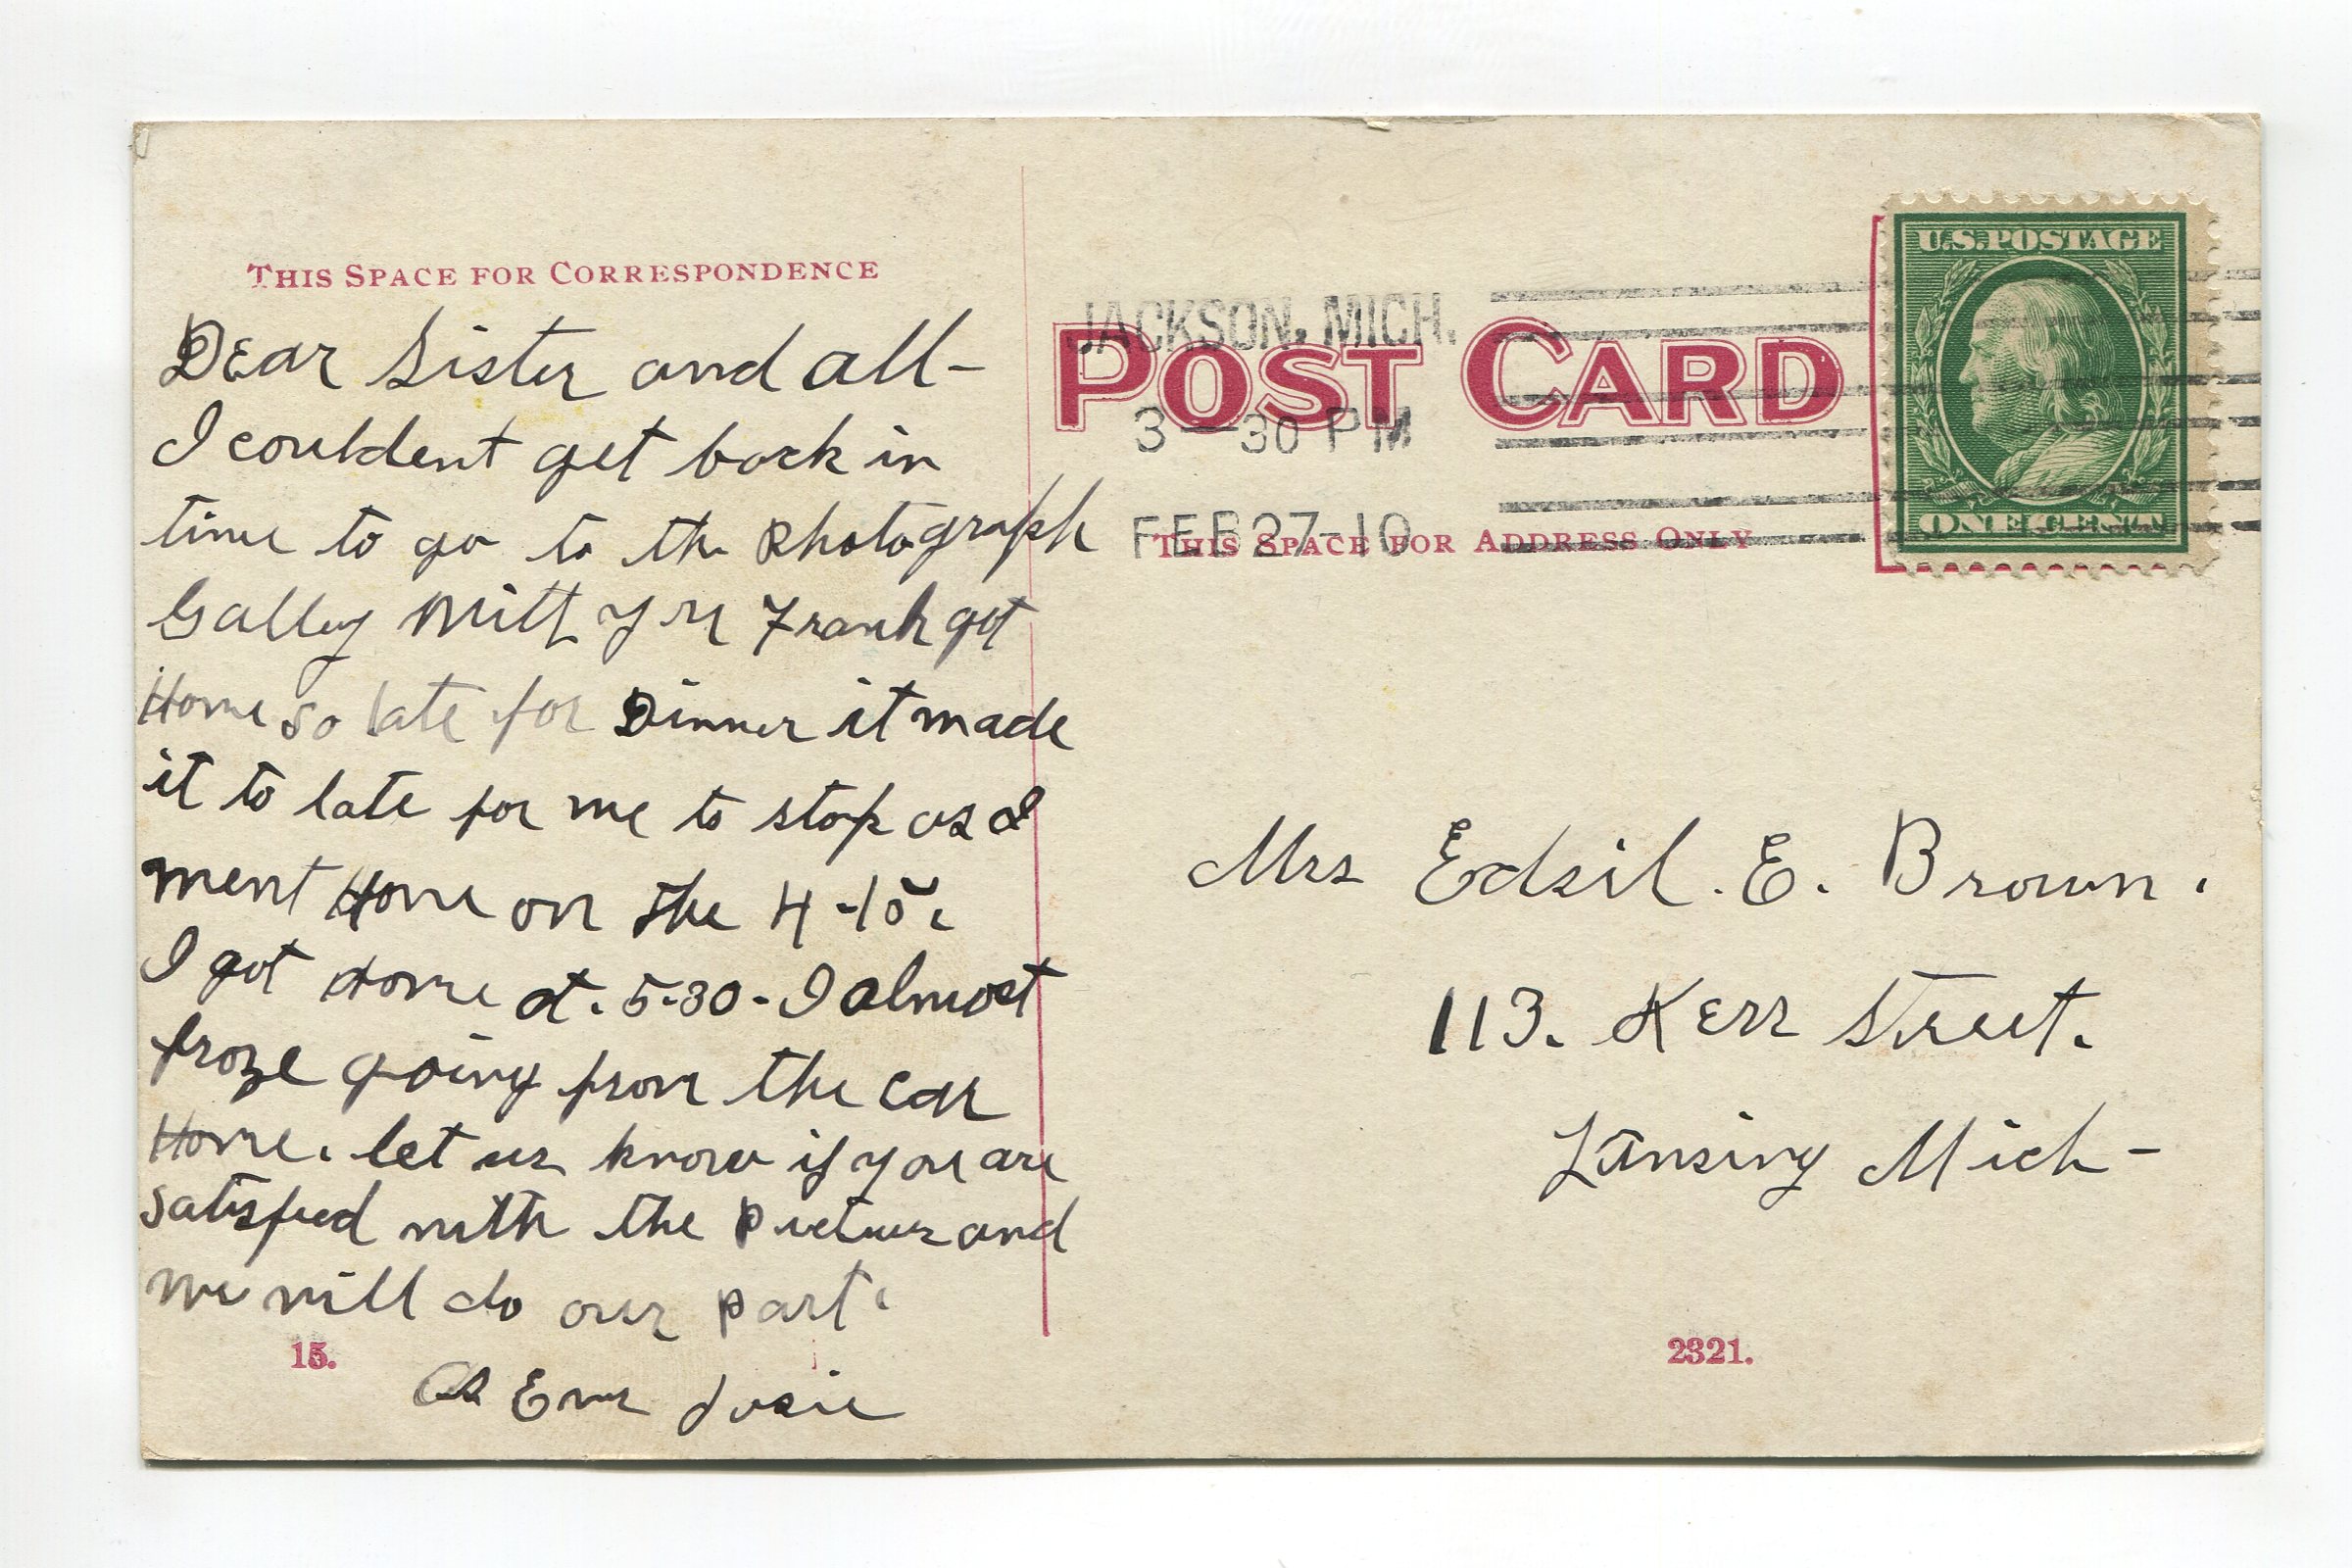 THIS SPACE FOR CORRESPONDENCE
Dear Sister and all-
I couldent get back in
time to go to the Photograph
Galley Frank got
Home so late for Dinner it made
it to late for me to stop as I
went Home on the 4-15.
I got Home at. 5-30- I almost
froze going from the car
Home. let us know if you are
satisfied with the Pictures and
we will do our part.
As Ever Josie
15.
POST CARD
JACKSON, MICH.
3-30 PM
FEB 27-10
THIS SPACE FOR ADDRESS ONLY
U.S. POSTAGE
ONE CENT
Mrs Edsil. E. Brown.
113. Kerr Street.
Lansing Mich-
2321.